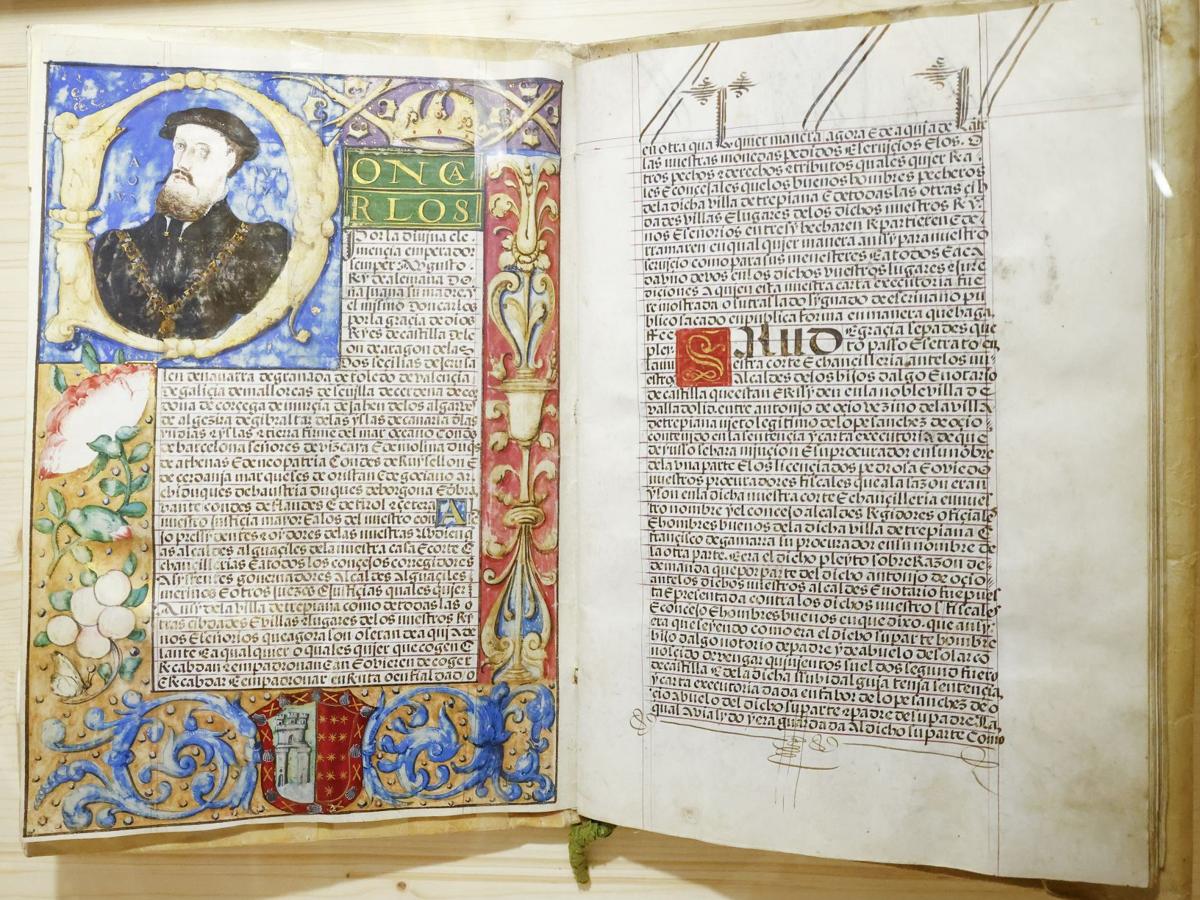 ON CA
RLOS
por la divina cle
mençia emperador
semper Augusto
Rey de alemana Do
ña juana su madre y
el mismo don carlos
por la graçia de dios
Reyes de castilla de le
on de aragon de las
Dos seçilias de jerusa
len de navarra de granada de toledo de valençia
de galiçia de mallorcas de sevilla de çerdena de cor
dova de corçega de murçia de jahen de los algarves
de algezira de gibraltar de las yslas de canaria de las
yndias E yslas E tierra firme del mar oçeano condes
de barçelona señores de vizcaya E de molina duqs
de athenas E de neopatria Condes de Ruysellon E
de çerdania marqueses de oristan E de goçiano ar
chiduques de baustria Duques de borgoña E bra
vante condes de flandes E de tirol Eçetera A
nuestro justiçia mayor E a los del nuestro con
sejo E
presydentes E oydores de las nuestras Abdiençi
as alcaldes alguaçiles de la nuestra casa E corte E
chançillerias E a todos los conçejos corregidores
Asystentes governadores Alcaldes Alguaçiles
merinos E otros juezes E justiçias quales quier
Ansy de la villa de trepiana como de todas las o
tras çibdades E villas E lugares de los nuestros Rey
nos E señorios que agora son o seran de aqui ade
lante E a qualquier o quales quier que cogen E
Recabdan E empadronan E an E ovieren de coger
E Recabdar E empadronar en Renta o en fialdad o
en otra qualquier manera agora E de aqui adelante
las nuestras monedas pedidos E serviçios E los o
tros pechos E derechos E tributos quales quier Rea
les E conçejales que los buenos hombres pecheros
de la dicha villa de trepiana E de todas las otras çib
dades villas E lugares de los dichos nuestros Rey
nos E señorios entre sy hecharen E Repartieren E de
rramaren en qual quier manera ansy para nuestro
serviçio como para sus menesteres E a todos E a ca
da vno de vos en los dichos vuestros lugares E jure
diçiones A quien esta nuestra carta executoria fue
re mostrada o su traslado sygnado de escrivano pu
blico sacado en publica forma en manera que haga
ffee
SALUD E graçia sepades que
pleyto passo E se trato en
nuestra corte E chançilleria ante los nu
estros alcaldes de los hijos dalgo E notario
de castilla que estan E Resyden en la noble villa de
valladolid entre antonio de oçio vezino de la villa
de trepiana nieto legitimo de lope sanchez de oçio
contenido en la sentençia y carta executoria de que
de yuso se hara minçion E su procurador en su nombre
de la vna parte E los liçençiados pedrosa E oviedo
nuestros procuradores fiscales que a la sazon eran
y son en la dicha nuestra corte E chançilleria en nues
tro nombre y el conçejo alcaldes Regidores ofiçiales
E hombres buenos de la dicha villa de trepiana E
françisco de gamarra su procurador en su nombre de
la otra parte E era el dicho pleyto sobre Razon de
demanda que por parte del dicho antonio de oçio
ante los dichos nuestros alcaldes E notario fue pues
ta E presentada contra los dichos nuestros fiscales
E conçejo E hombres buenos en que dixo que ansy
hera que seyendo como era el dicho su parte hombre
hijo dalgo notorio de padre y de abuelo de solar co
nosçido de vengar quinientos sueldos segund fuero
de castilla E de la dicha su hidalguia tenia sentençia
y carta executoria dada en fabor de lope sanchez de o
çio abuelo del dicho su parte E padre de su padre la
qual avia sydo y era guardada Al dicho su parte Como